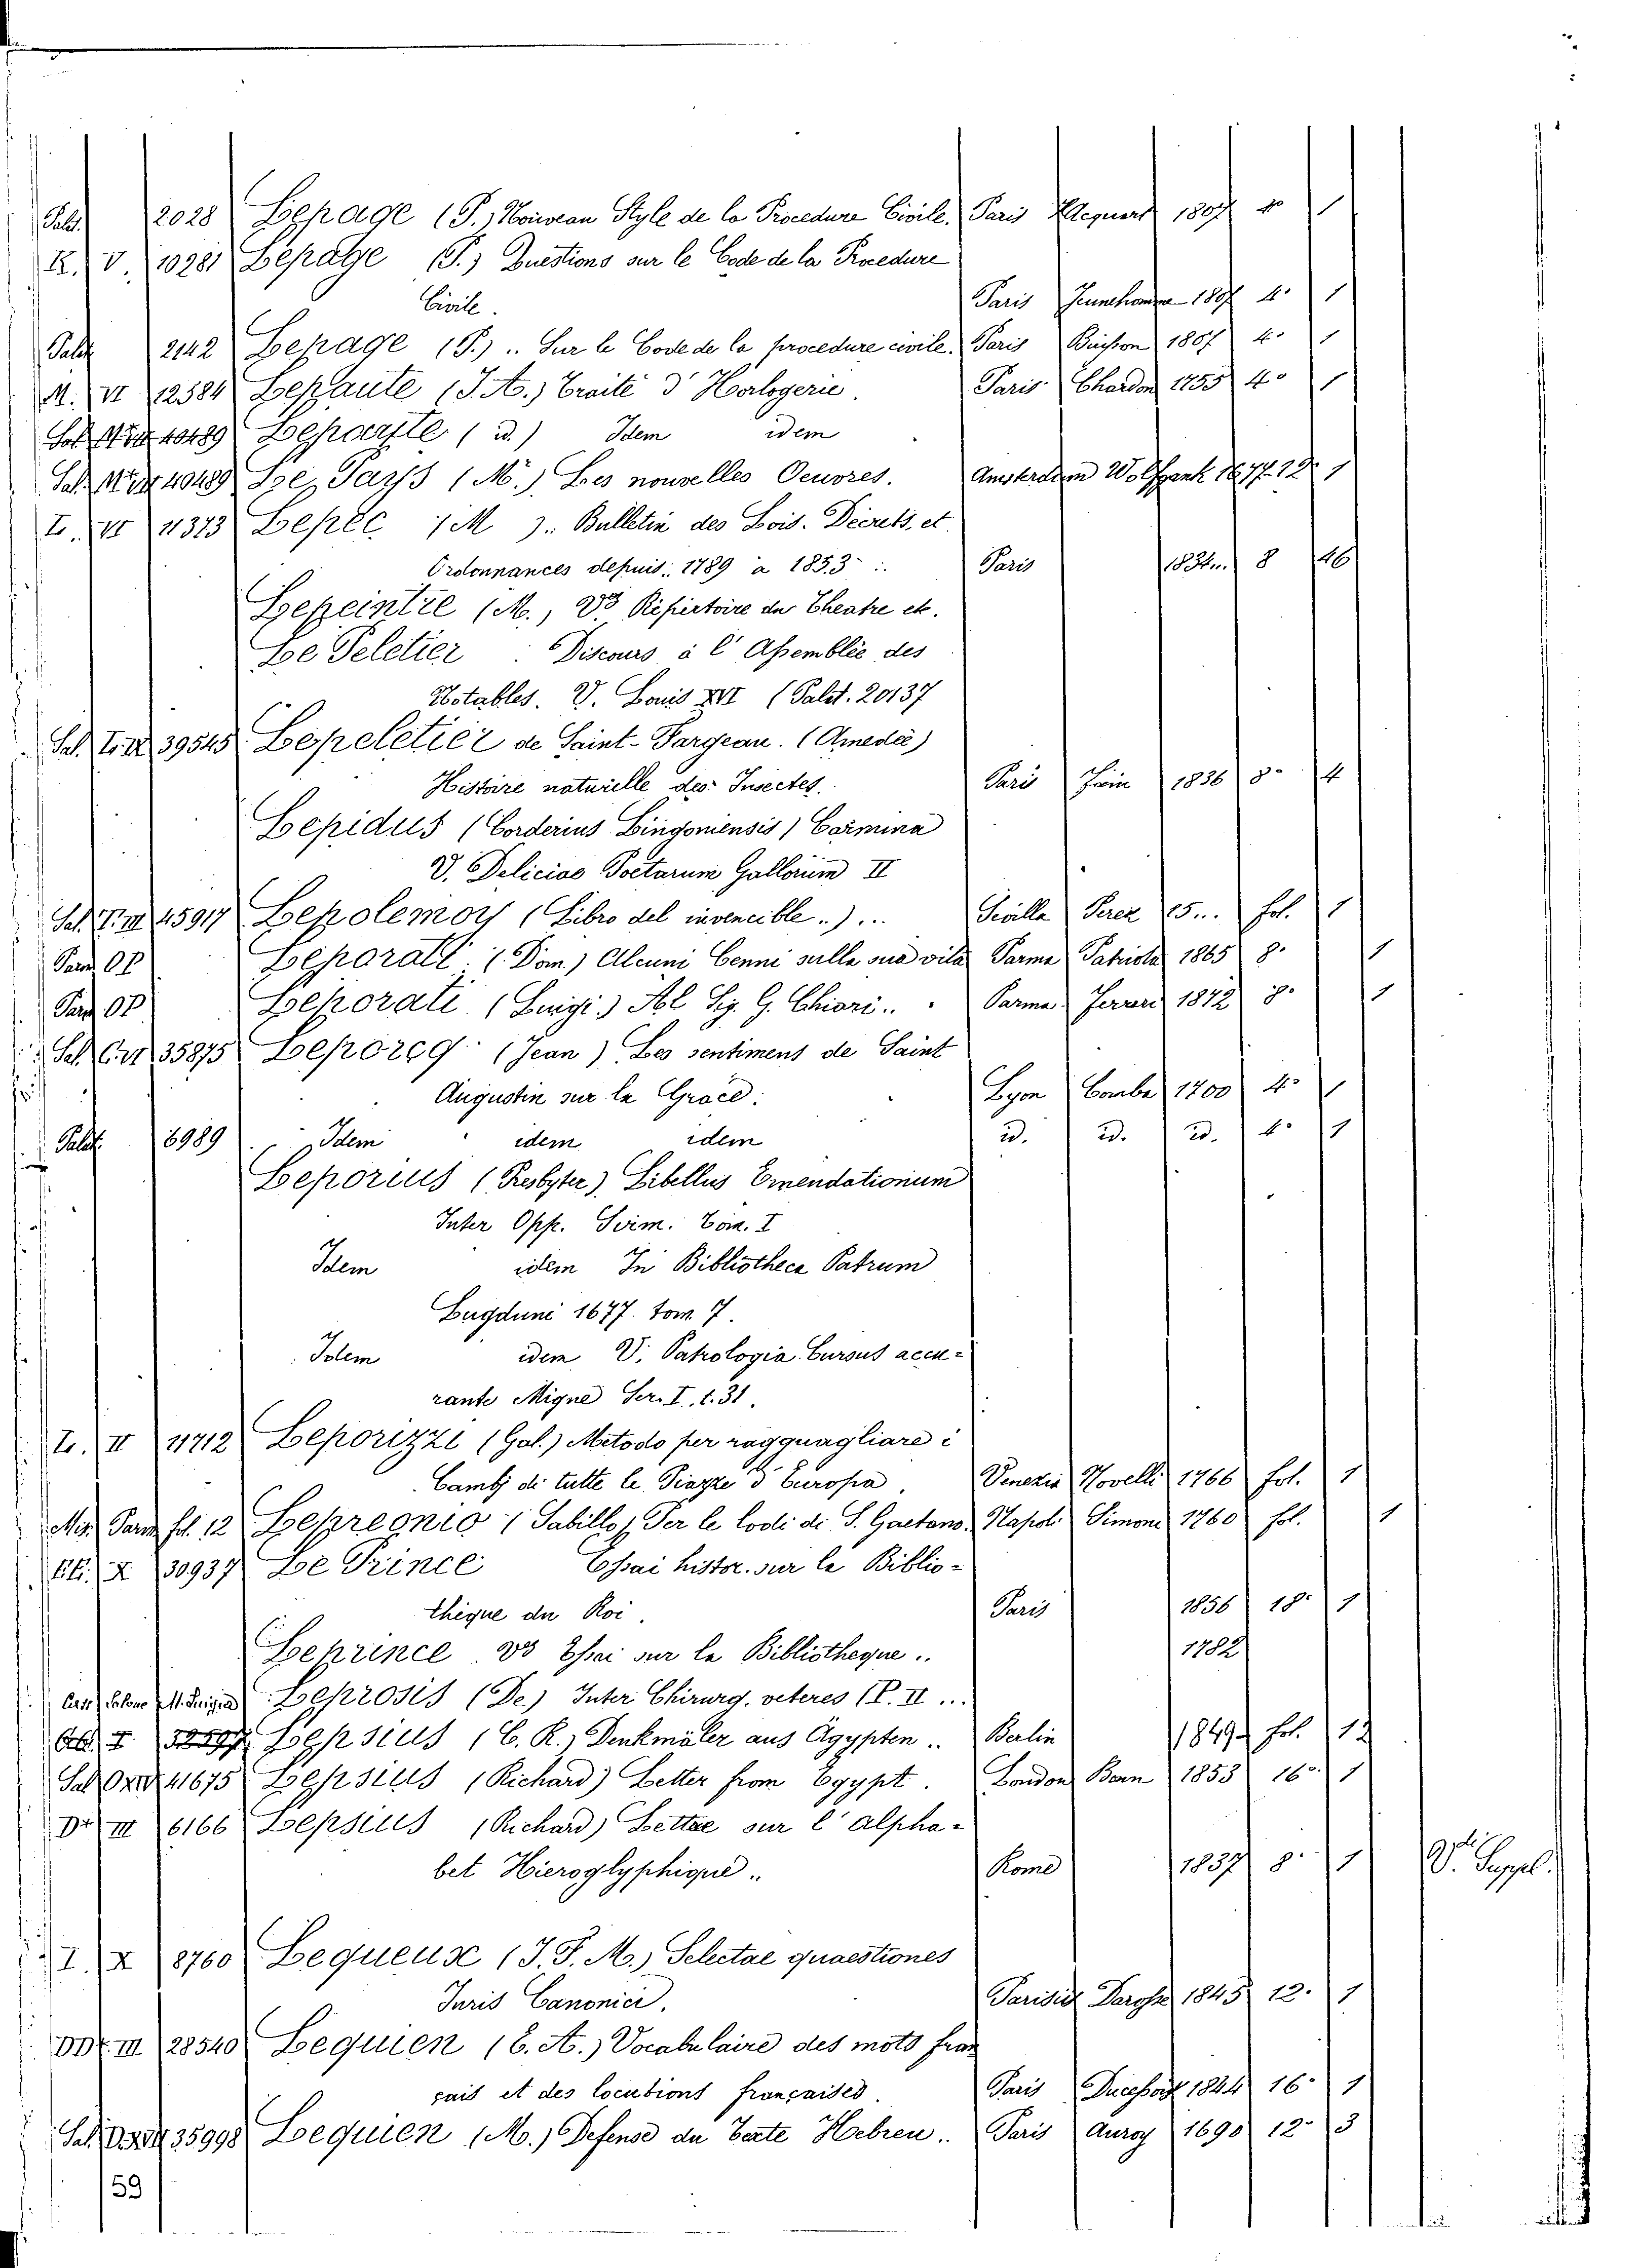 Palat. 2028 Lepage (P.) Nouveau Style de la Procedure Civile. Paris 1807 4° 1
K. V. 10281 Lepage (P.) Questions sur le Code de la Procedure
Civile. Paris 1807 4° 1
Palat. 2142 Lepage (P.) .. Sur le Code de la procedure civile. Paris Buisson 1807 4° 1
M. VI 12584 Lepaute (J. A.) Traité d'Horlogerie. Paris Chardon 1755 4° 1
Sal. 40489 Lepautte (id.) Idem idem
Sal. 40489 Le Pays (M.) Les nouvelles Oeuvres. Amsterdam Wolfgank 1677 12° 1
L. VI 11373 Lepec (M ). Bulletin des Lois. Décrets, et
Ordonnances depuis 1789 à 1853 .. Paris 1834... 8 46
Lepeintre (M., V° Répertoire du Theatre etc.
Le Peletier : Discours à l'Assemblée des
Notables. V. Louis XVI (Palat. 20137
Sal. 39545 Lepeletier de Saint-Fargeau. (Amedée)
Histoire naturelle des Insectes. Paris 1836 8° 4
Lepidus (Corderius Lingoniensis) Carmina
V. Deliciae Poetarum Gallorum II
Sal. T. III 45917 Lepolemoy (Libro del invencible..) ... Sevilla Perez 15... fol. 1
Parm. OP Leporati. (Dom.) Alcuni Cenni sulla sua vita Parma Patriota 1865 8° 1
Parm. OP Leporati (Luigi.) Al Sig. G. Chiari .. Parma Ferrari 1872 8° 1
Sal. 35875 Leporeg (Jean) Les sentimens de Saint
Augustin sur la Grace: Lyon Comba 1700 4° 1
Palat. 6989 Idem idem idem id. id. id. 4° 1
Leporius (Presbyter) Libellus Emendationium
Inter Opp. Sirm. Tom. I
Idem idem In Bibliotheca Patrum
Lugduni 1677. tom. 7.
Idem idem V. Patrologia Cursus accu-
rante Migne Ser. I. t. 31.
L. II 11712 Leporizzi (Gal.) Metodo per ragguagliare i
Cambj di tutte le Piazze d'Europa. Venezia Novelli 1766 fol. 1
Mis. Parm. fol. 12 Lepreonio (Sabillo), Per le lodi di S. Gaetano. Napoli Simoni 1760 fol. 1
X 30937 Le Prince Essai histor. sur la Biblio-
theque du Roi. Paris 1856 18° 1
Leprince V° Essai sur la Bibliotheque .. 1782
Leprosis (De) Inter Chirurg. veteres (P. II ...
Lepsius (C. R.) Denkmäler aus Ägypten .. Berlin 1849 fol. 12
Sal. 41675 Lepsius (Richard) Letter from Egypt. London Bonn 1853 16° 1
Dr III 6166 Lepsius (Richard) Lettre sur l'alpha-
bet Hieroglyphique .. Rome 1837 8° 1 V. Suppel.
I. X 8760 Lequeux (J. F. M.) Selectae quaestiones
Juris Canonici. Parisiis 1845 12° 1
III 28540 Lequien (E. A.) Vocabulaire des mots fran
çais et des locutions françaises. Paris 1824 16° 1
Sal. 35998 Lequien (M.) Defense du Texte Hebreu .. Paris Auroy 1690 12° 3
59